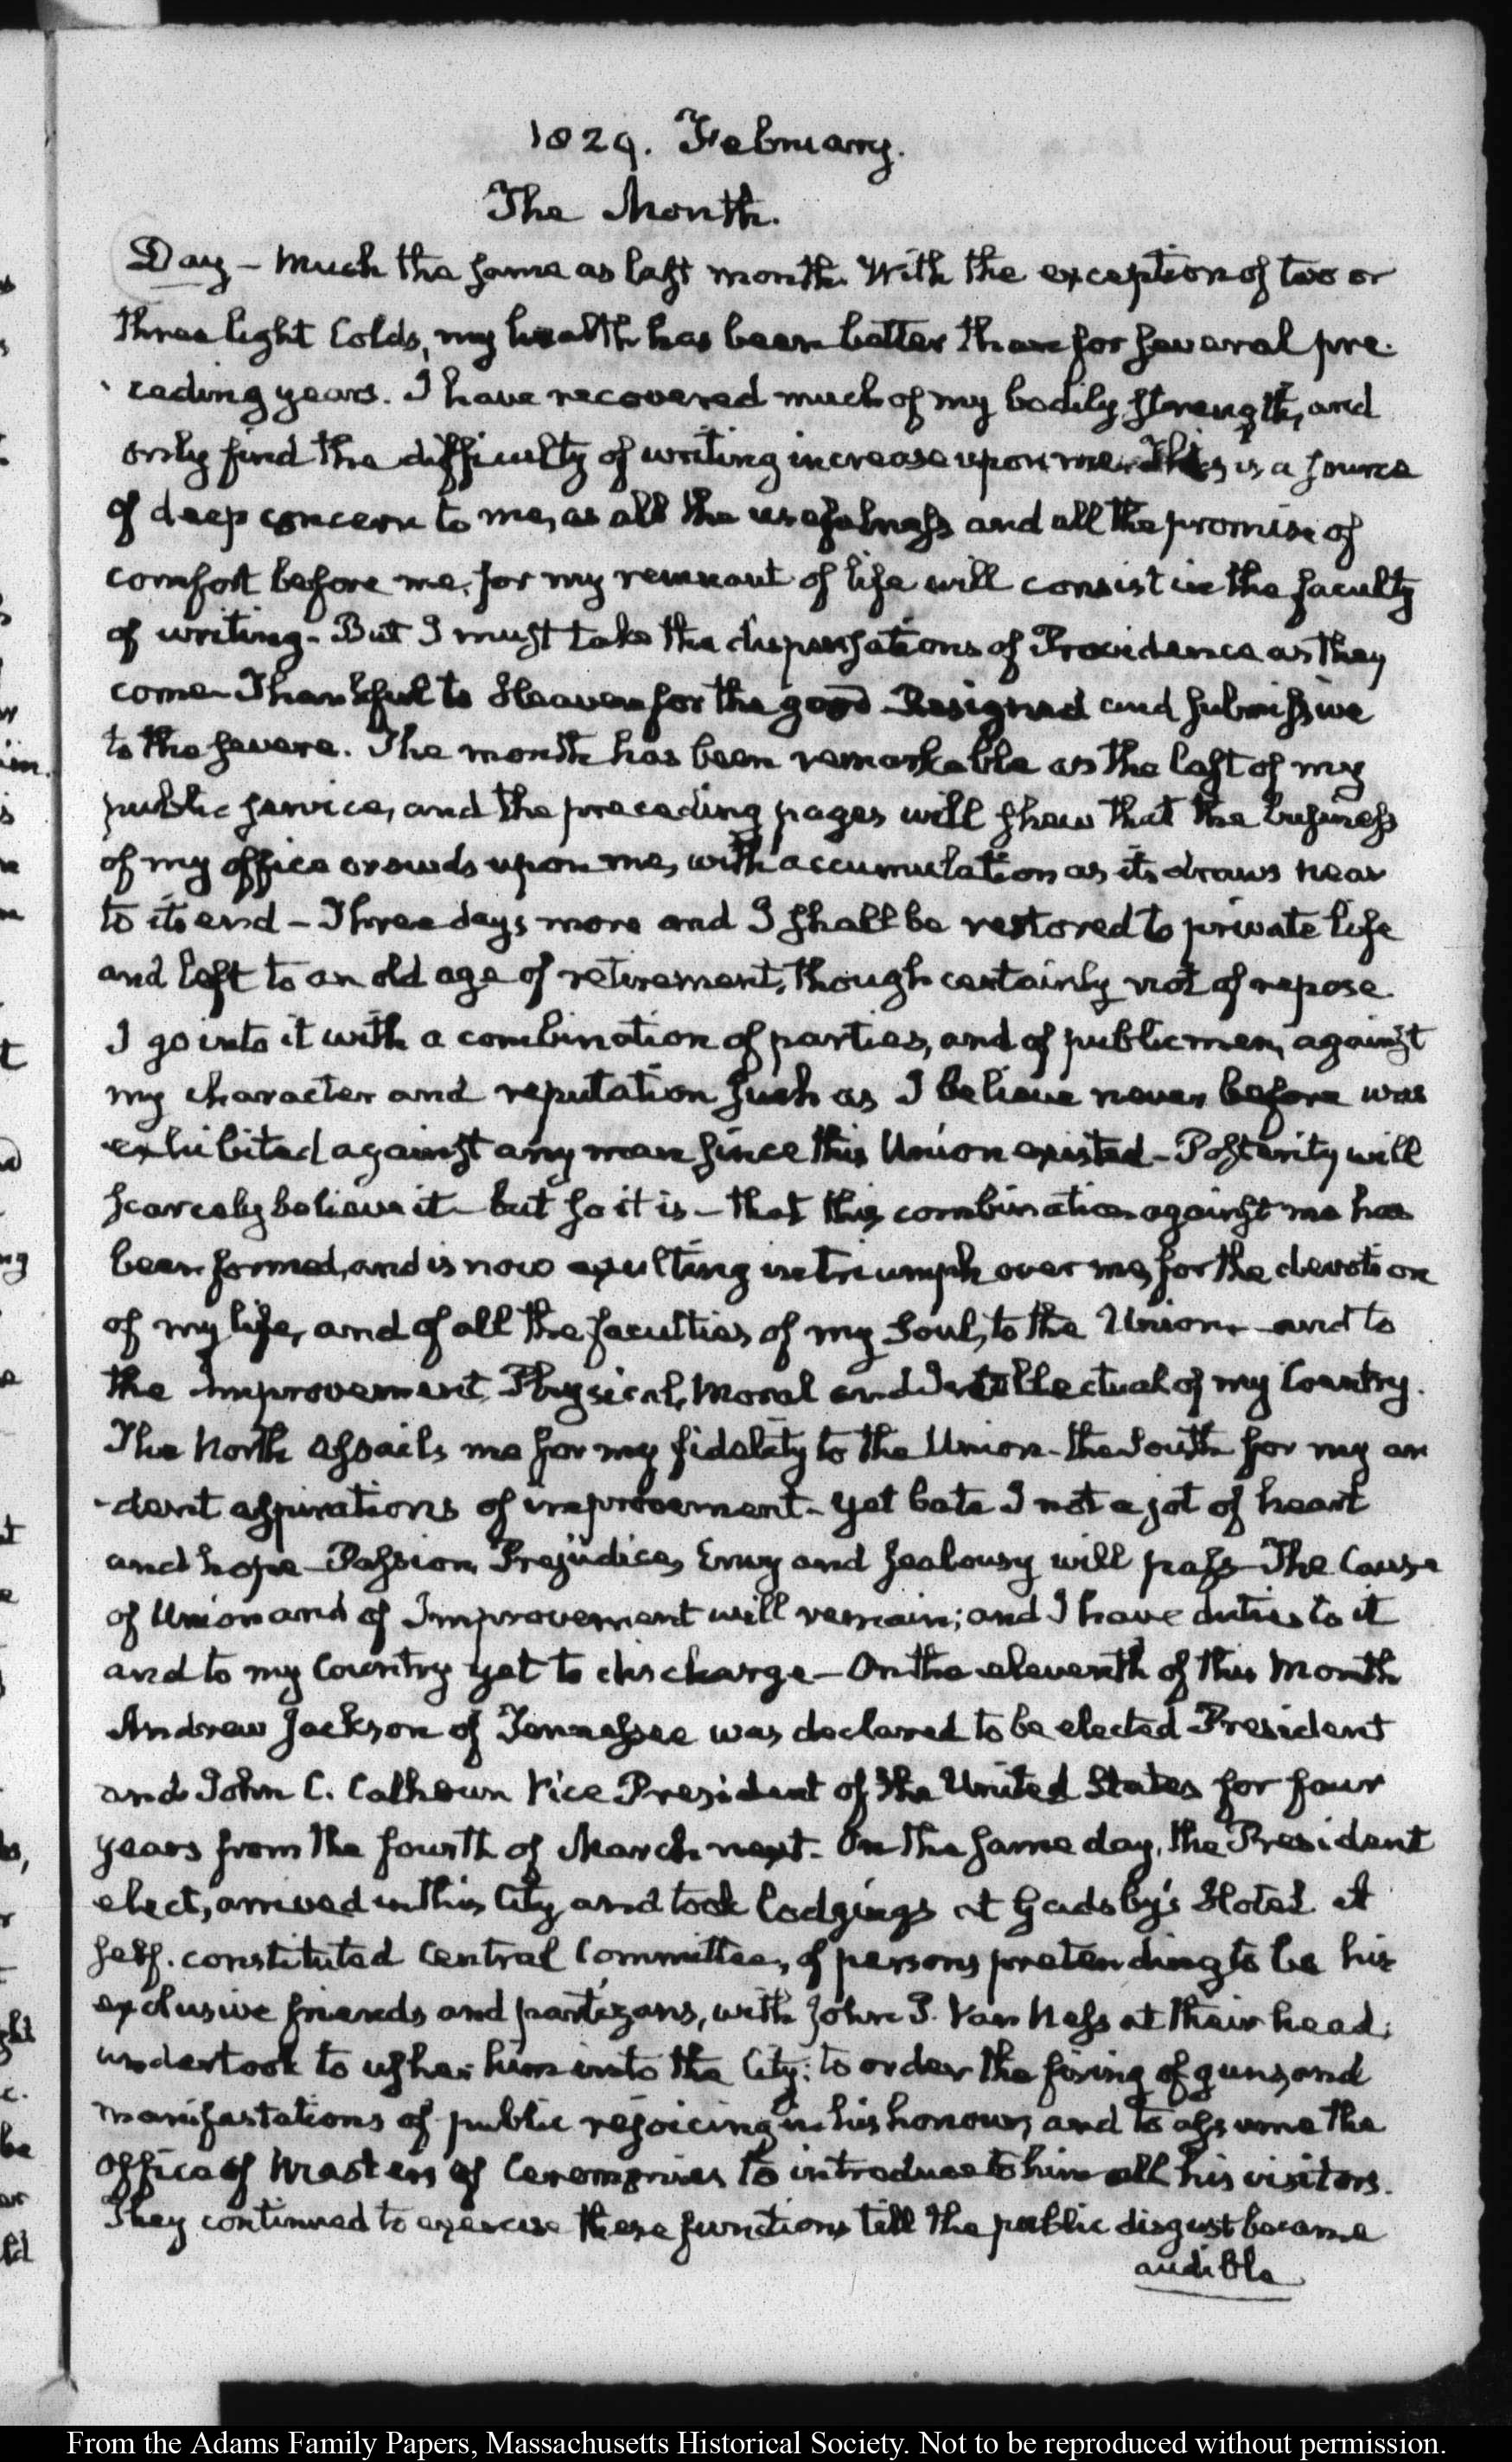 1829. February.
The Month.
Day – Much the same as last month. With the exception of two or
three light Colds, my health has been better than for several pre-
ceding years. I have recovered much of my bodily strength, and
only find the difficulty of writing increase upon me. This is a source
of deep concern to me, as all the usefulness and all the promise of
comfort before me, for my remnant of life will consist in the faculty
of writing – But I must take the dispensations of Providence as they
come – Thankful to Heaven for the good – Resigned and submissive
to the severe. The month has been remarkable as the last of my
public service, and the preceding pages will shew that the business
of my office crowds upon me, with accumulation as it draws near
to its end – Three days more and I shall be restored to private life
and left to an old age of retirement, though certainly not of repose.
I go into it with a combination of parties, and of public men, against
my character and reputation such as I believe never before was
exhibited against any man since this Union existed – Posterity will
scarcely believe it – but so it is – that this combination against me has
been formed, and is now exulting in triumph over me, for the devotion
of my life, and of all the faculties of my Soul, to the Union, and to
the Improvement, Physical, Moral and Intellectual of my Country.
The North assails me for my fidelity to the Union – the South for my ar
-dent aspirations of improvement – Yet bate I not a jot of heart
and hope – Passion, Prejudice, Envy and Jealousy will pass – The Cause
of Union and of Improvement will remain; and I have duties to it
and to my Country yet to discharge – On the eleventh of this Month
Andrew Jackson of Tennessee was declared to be elected President
and John C. Calhoun Vice President of the United States for four
years from the fourth of March next – On the same day, the President
elect, arrived in this City and took lodgings at Gadsby's Hotel. A
self-constituted Central Committee, of persons pretending to be his
exclusive friends and partizans, with John P. Van Ness at their head,
undertook to usher him into the City; to order the firing of guns, and
manifestations of public rejoicing in his honour, and to assume the
Office of Masters of Ceremonies to introduce to him all his visitors.
They continued to exercise these functions till the public disgust became
audible
From the Adams Family Papers, Massachusetts Historical Society. Not to be reproduced without permission.